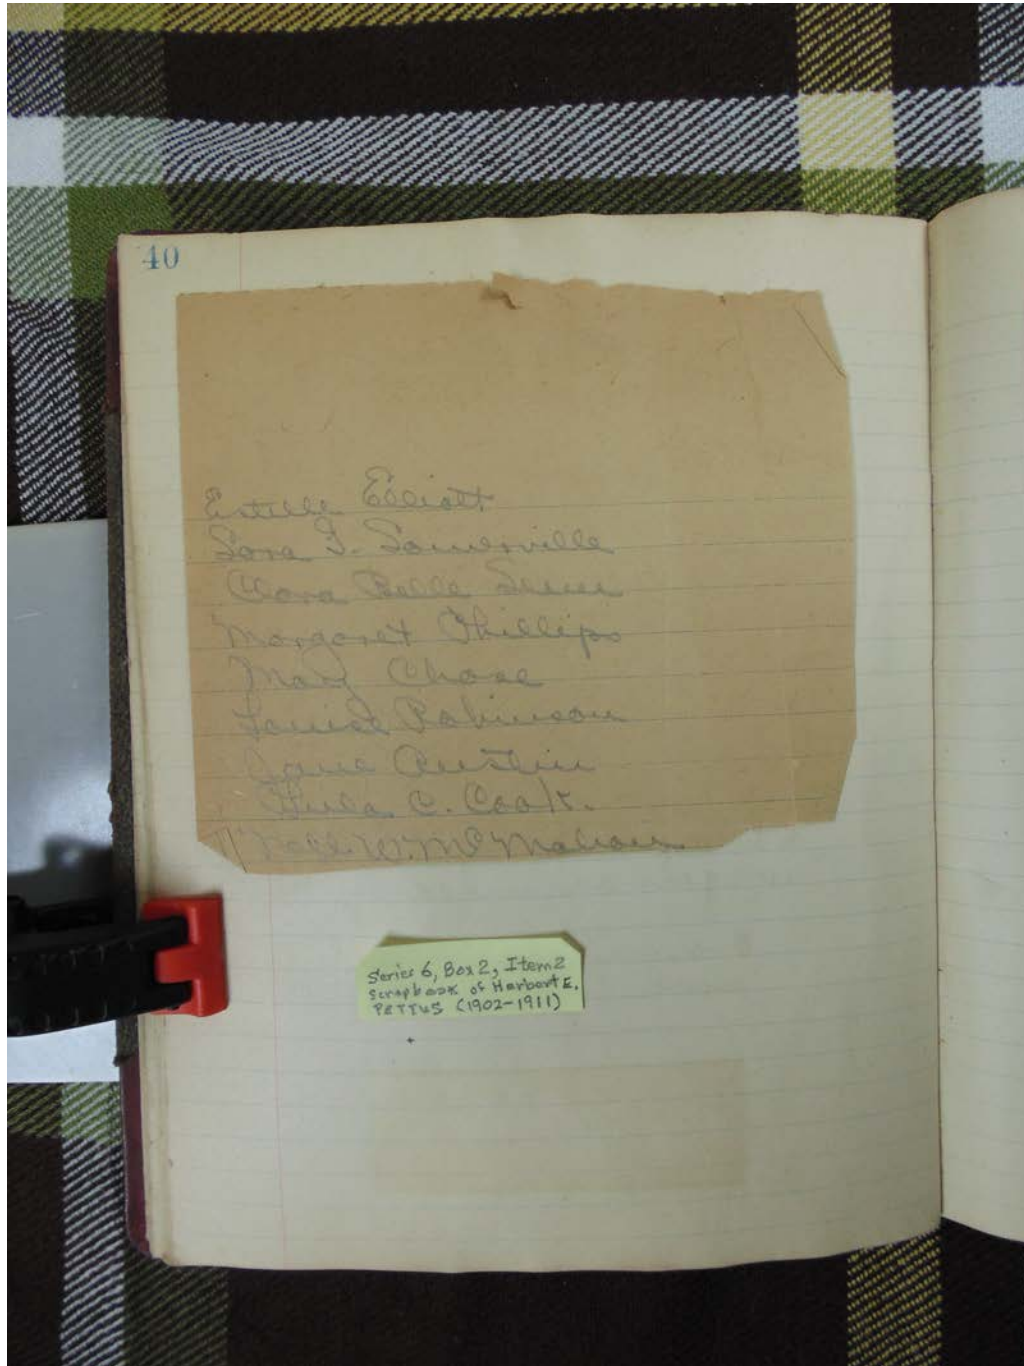 40
Estelle Elliott
Sora F. Somerville
Clara Belle
Margaret Phillips
Mary Chase
Louise Robinson
Jane Austin
C. Cook.
W. McMahon
Series 6, Box 2, Item 2
Scrapbook of Herbert E.
PETTUS (1902-1911)